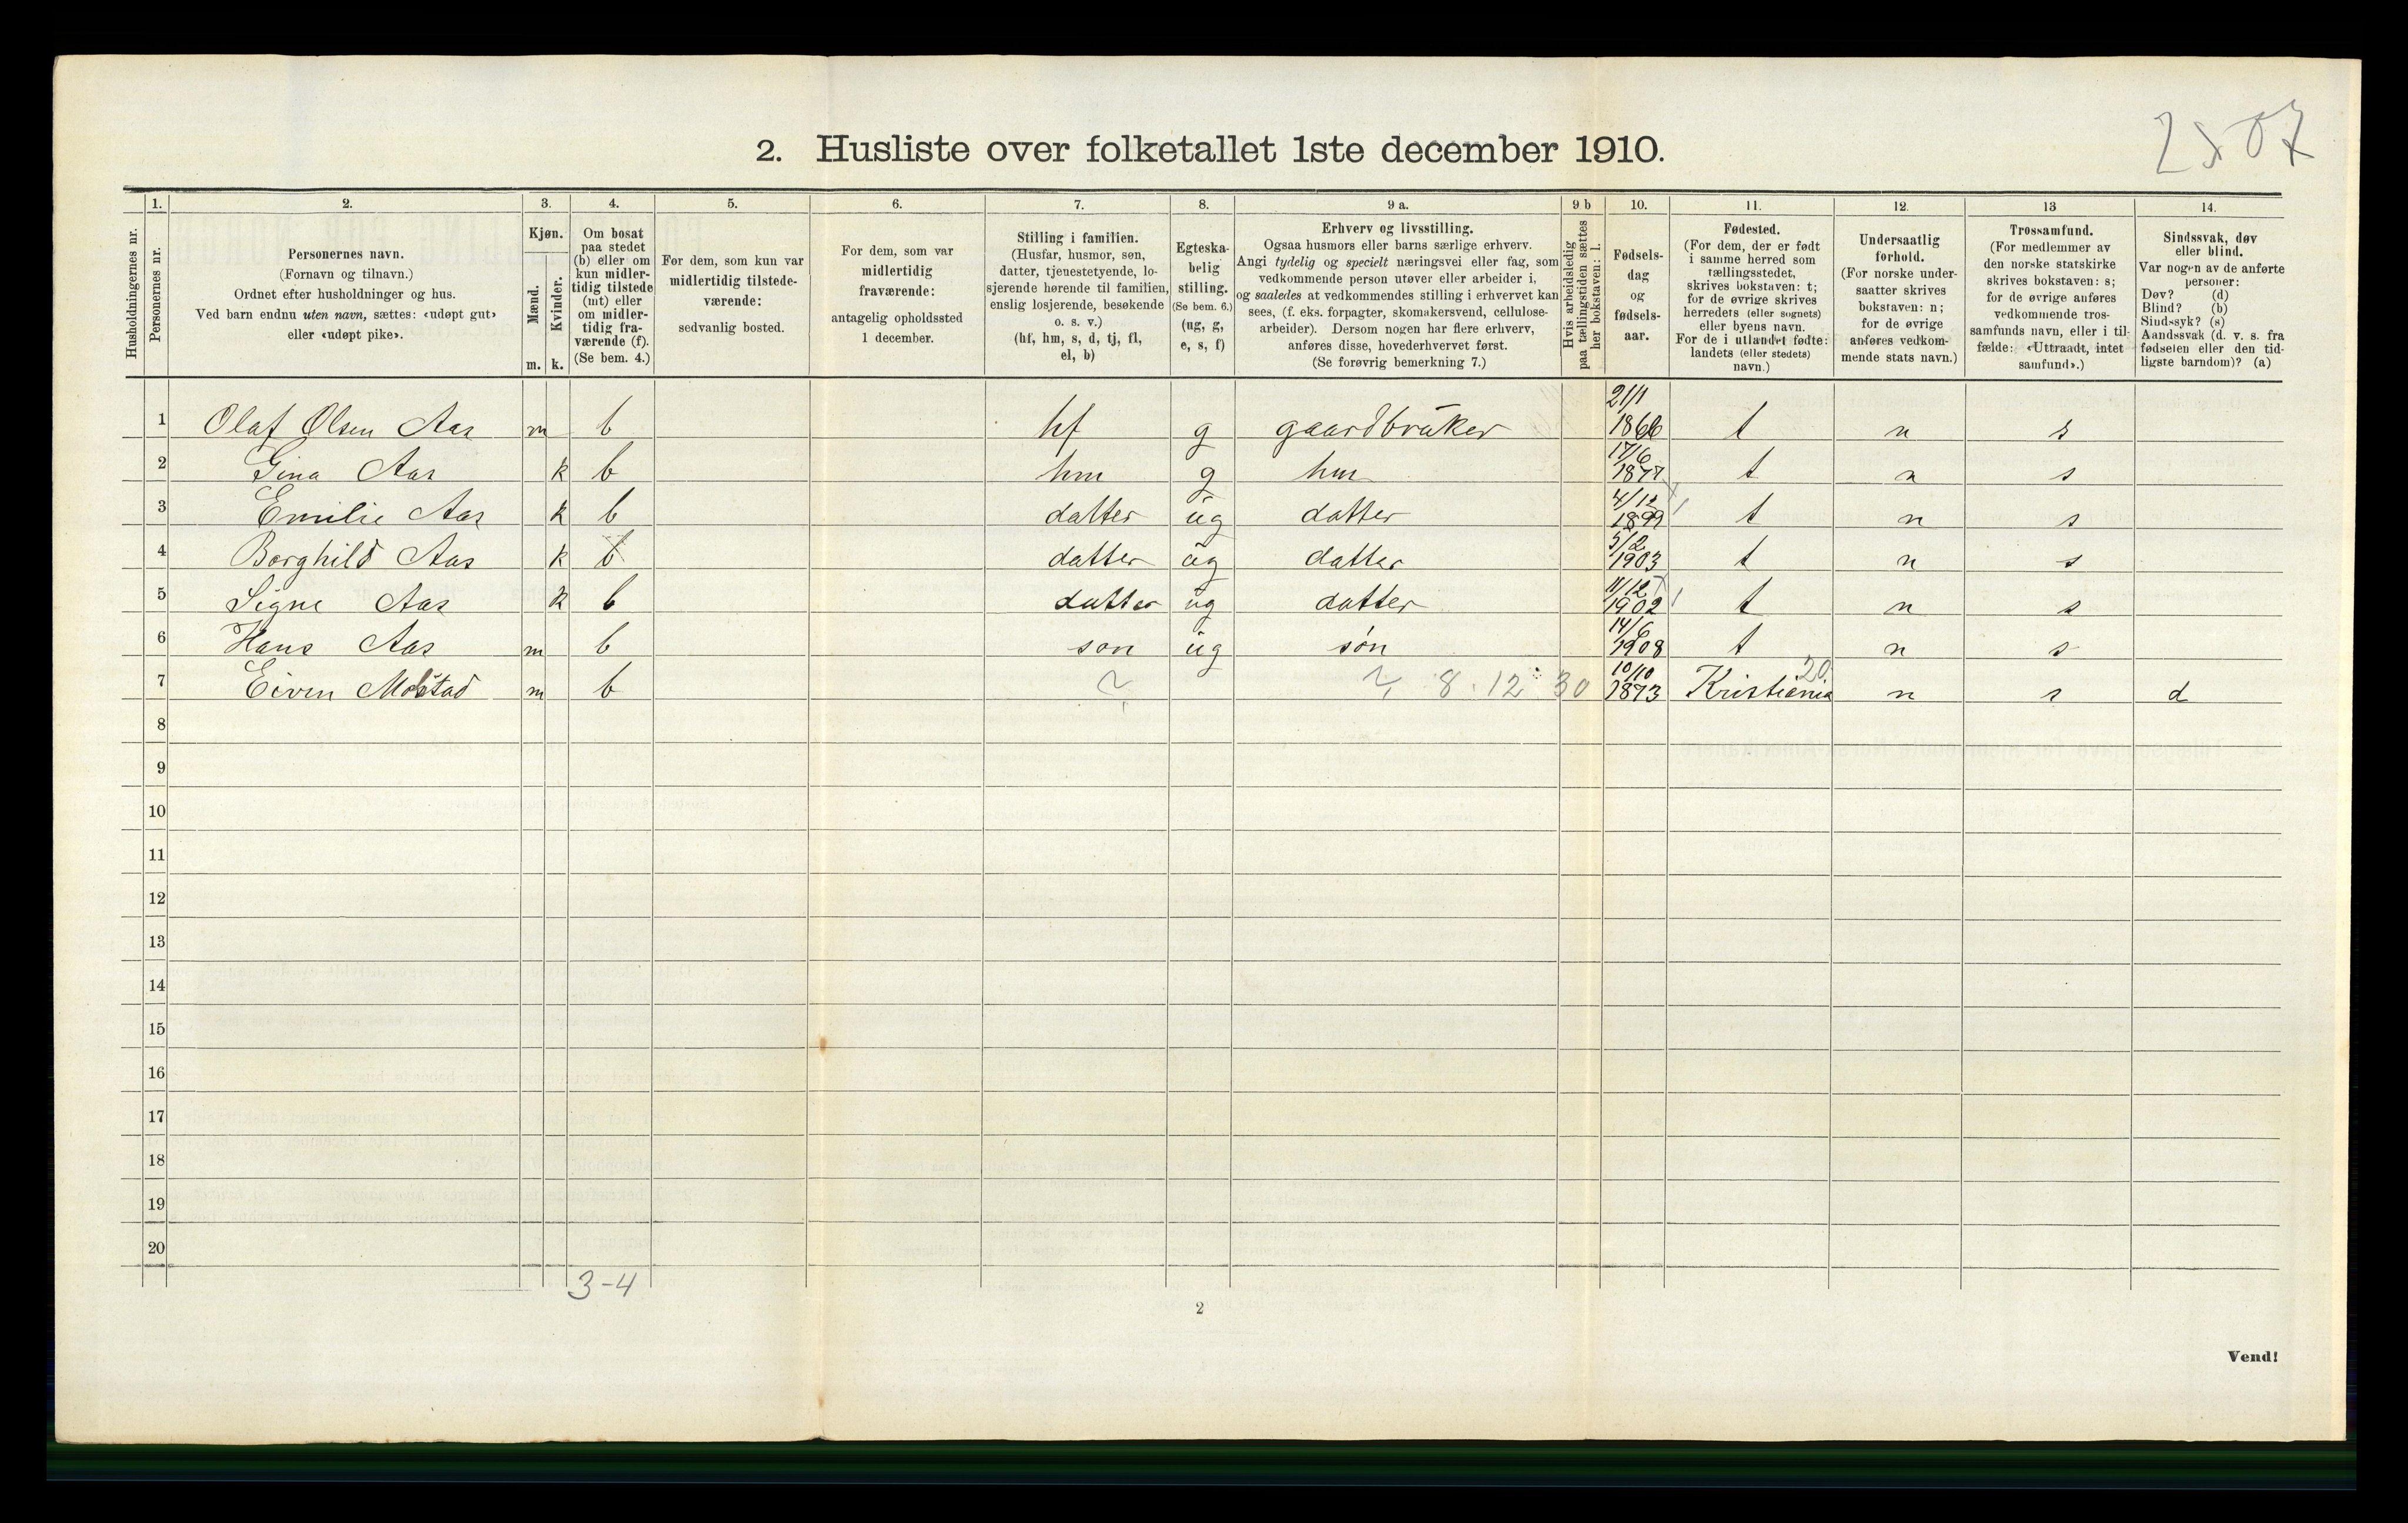 2. Husliste over folketallet 1ste december 1910.
Husholdningernes nr.
1. Personernes nr.
2. Personernes navn.
(Fornavn og tilnavn.)
Ordnet efter husholdninger og hus.
Ved barn endnu uten navn, sættes: «udøpt gut»
eller «udøpt pike».
3. Kjøn.
Mænd. Kvinder.
m. k.
4. Om bosat
paa stedet
(b) eller om
kun midler-
tidig tilstede
(mt) eller
om midler-
tidig fra-
værende (f).
(Se bem. 4.)
5. For dem, som kun var
midlertidig tilstede-
værende:
sedvanlig bosted.
6. For dem, som var
midlertidig
fraværende:
antagelig opholdssted
1 december.
7. Stilling i familien.
(Husfar, husmor, søn,
datter, tjenestetyende, lo-
sjerende hørende til familien,
enslig losjerende, besøkende
o. s. v.)
(hf, hm, s, d, tj, fl,
el, b)
8. Egteska-
belig
stilling.
(Se bem. 6.)
(ug, g,
e, s, f)
9 a. Erhverv og livsstilling.
Ogsaa husmors eller barns særlige erhverv.
Angi tydelig og specielt næringsvei eller fag, som
vedkommende person utøver eller arbeider i,
og saaledes at vedkommendes stilling i erhvervet kan
sees, (f. eks. forpagter, skomakersvend, cellulose-
arbeider). Dersom nogen har flere erhverv,
anføres disse, hovederhvervet først.
(Se forøvrig bemerkning 7.)
9 b Hvis arbeidsledig
paa tællingstiden sættes
her bokstaven: l.
10. Fødsels-
dag
og
fødsels-
aar.
11. Fødested.
(For dem, der er født
i samme herred som
tællingsstedet,
skrives bokstaven: t;
for de øvrige skrives
herredets (eller sognets)
eller byens navn.
For de i utlandet fødte:
landets (eller stedets)
navn.)
12. Undersaatlig
forhold.
(For norske under-
saatter skrives
bokstaven: n;
for de øvrige
anføres vedkom-
mende stats navn.)
13 Trossamfund.
(For medlemmer av
den norske statskirke
skrives bokstaven: s;
for de øvrige anføres
vedkommende tros-
samfunds navn, eller i til-
fælde: «Uttraadt, intet
samfund».)
14. Sindssvak, døv
eller blind.
Var nogen av de anførte
personer:
Døv? (d)
Blind? (b)
Sindssyk? (s)
Aandssvak (d. v. s. fra
fødselen eller den tid-
ligste barndom)? (a)
1 Olaf Olsen Aas m b hf g gaardbruker 21/1 1866 t n s
2 Gina Aas k b hm g hm 17/6 1877 t n s
3 Emilie Aas k b datter ug datter 4/12 1899 t n s
4 Borghild Aas k b datter ug datter 5/2 1903 t n s
5 Signe Aas k b datter ug datter 11/12 1902 t n s
6 Hans Aas m b søn ug søn 14/6 1908 t n s
7 m b ? ? 8.12 30 10/10 1873 Kristiania 20 n s d
8
9
10
11
12
13
14
15
16
17
18
19
20
3-4
2
Vend!